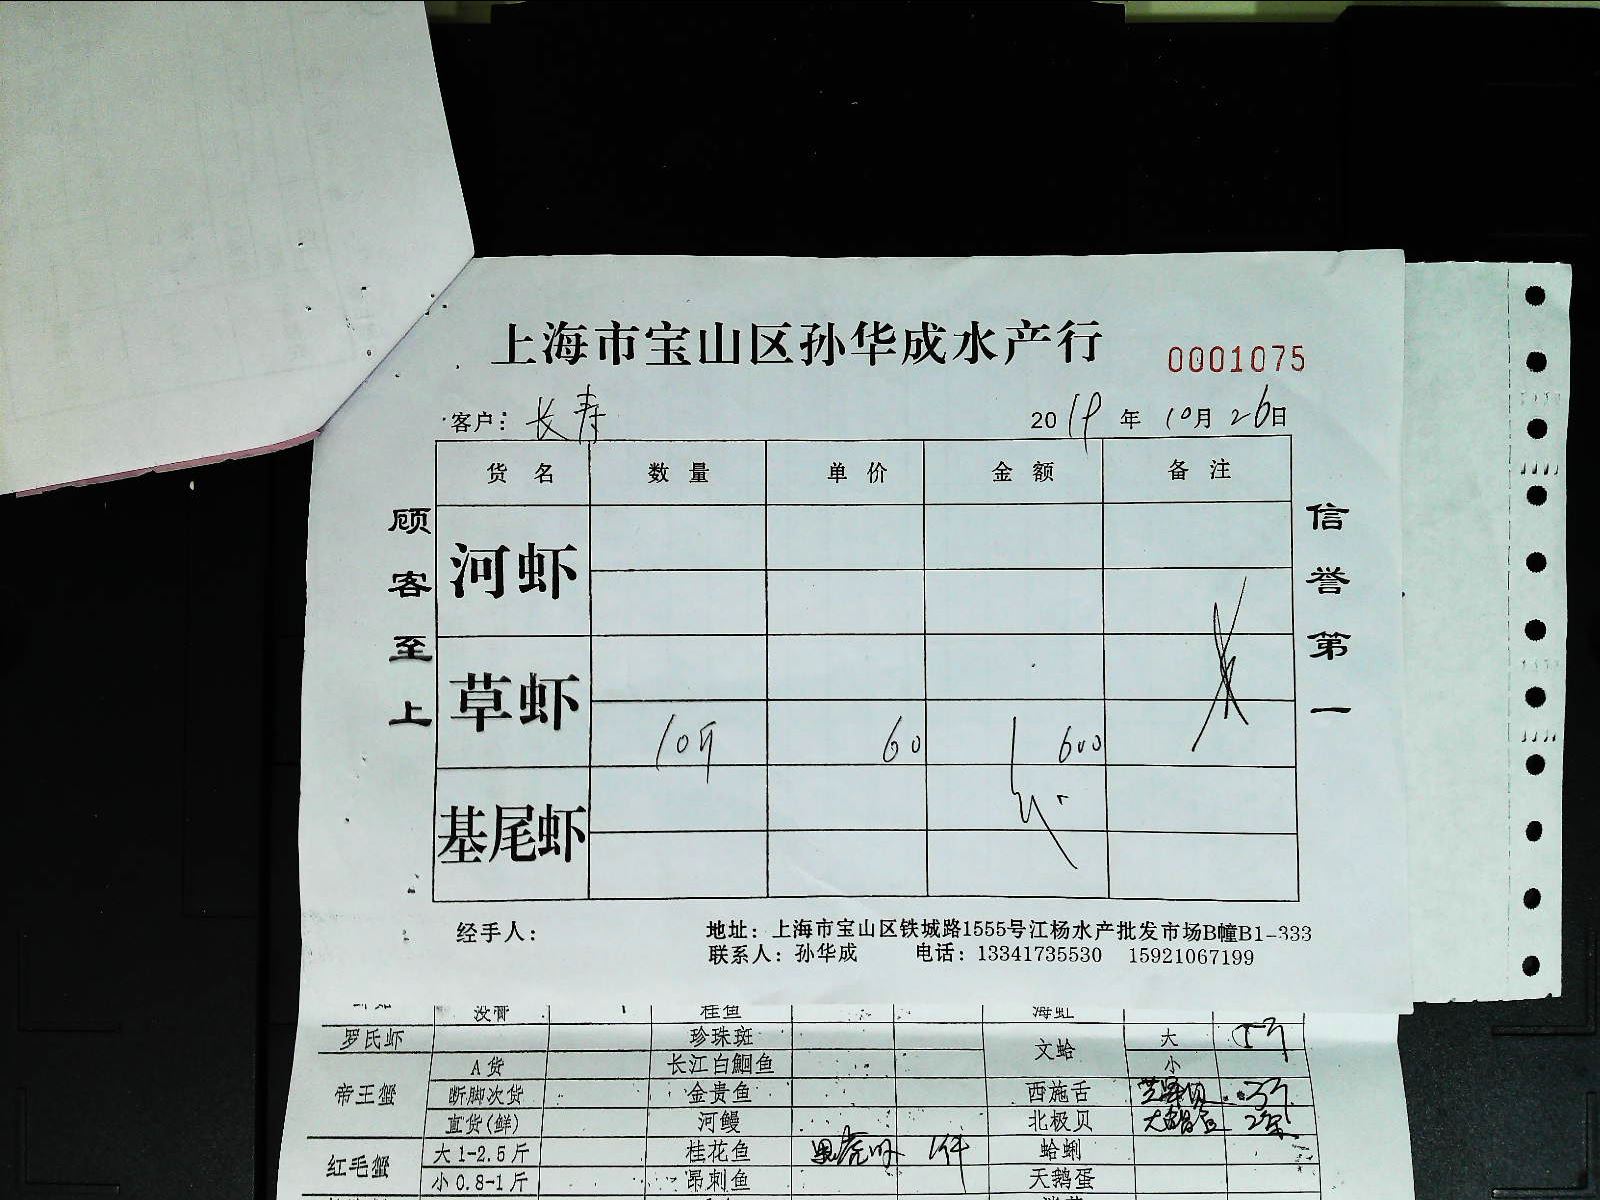 上海市宝山区孙华成水产行
0001075
客户：长寿
2019年10月26日
货名 数量 单价 金额 备注
河虾
草虾
10斤 60 600
基尾虾
顾客至上
信誉第一
经手人：
地址：上海市宝山区铁城路1555号江杨水产批发市场B幢B1-333
联系人：孙华成 电话：13341735530 15921067199
没膏 桂鱼 海虹
罗氏虾 珍珠斑 文蛤 大
A货 长江白鮰鱼 小
帝王蟹 断脚次货 金贵鱼 西施舌
直货(鲜) 河鳗 北极贝
红毛蟹 大1-2.5斤 桂花鱼 1件 蛤蜊
小0.8-1斤 昂刺鱼 天鹅蛋